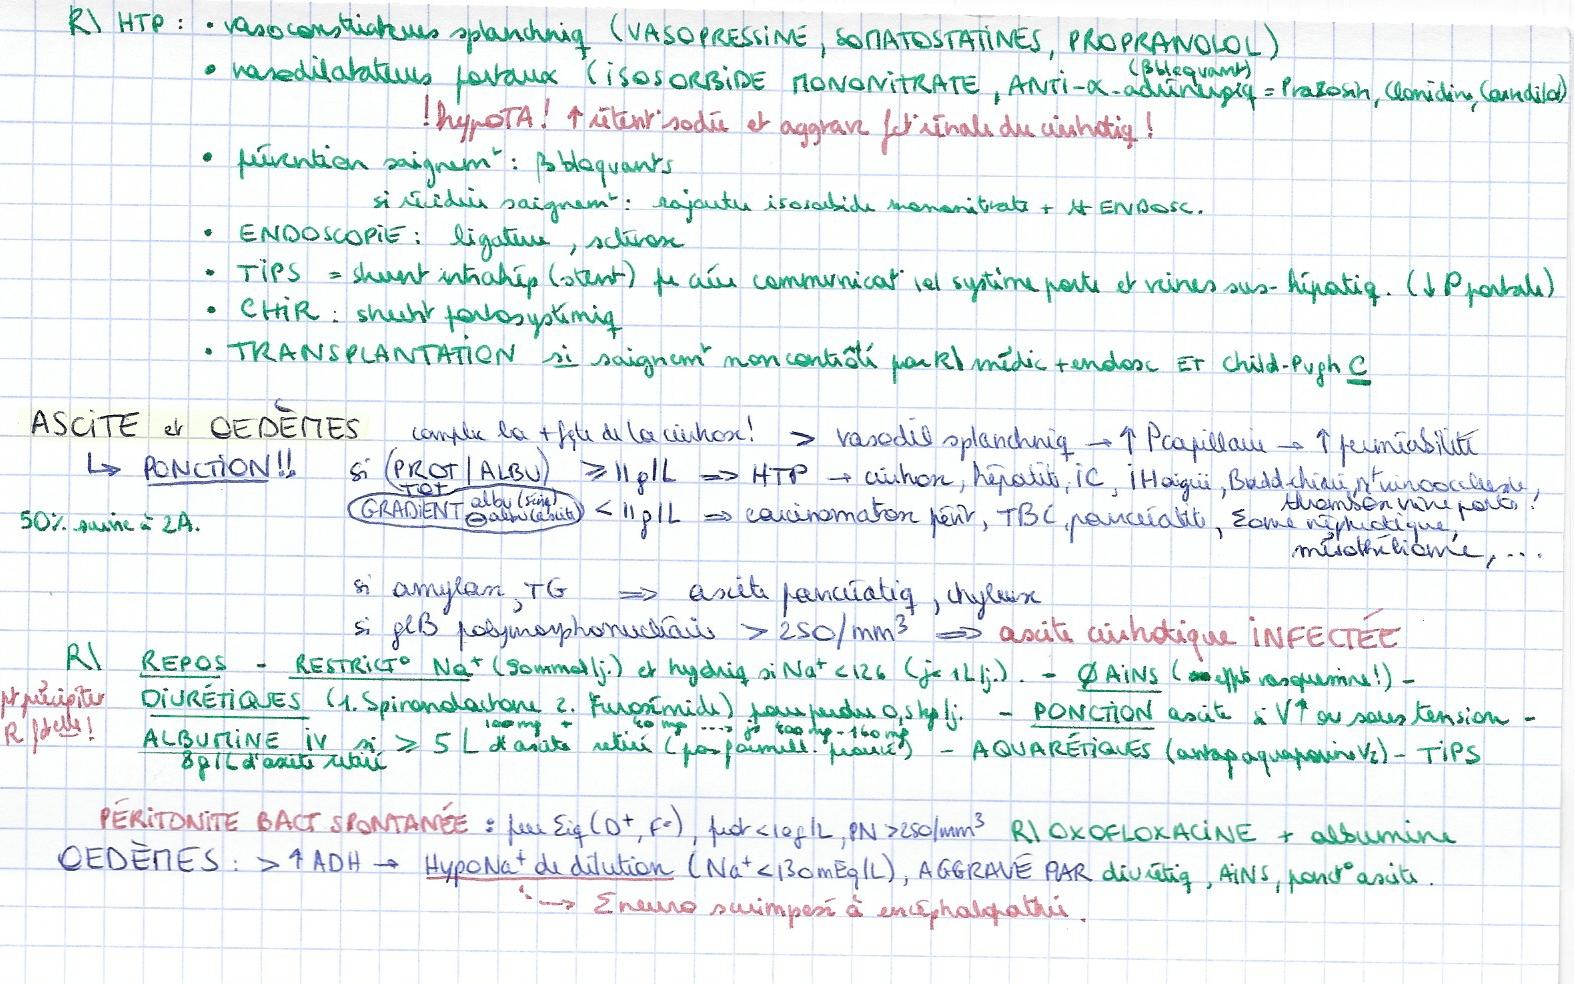 R) HTP : • vasoconstricteurs splanchniq (VASOPRESSINE, SOMATOSTATINES, PROPRANOLOL)
(βbloquant)
• vasodilatateurs portaux (iSOSORBIDE MONONiTRATE, ANTi-α-adrénergiq = Prazosin, Clonidine, Carvedilol)
! hypoTA ! ↑ rétent° sodée et aggrave fct° rénale du cirrhotiq !
• prévention saignemt : βbloquants
si récidive saignemt : rajouter isosorbide mononitrate + ENDOSC.
• ENDOSCOPiE : ligature, sclérose
• TiPS = shunt intrahép (stent) pr créer communicat° système porte et veines sus-hépatiq. (↓ P portale)
• CHiR : shunt portosystémiq
• TRANSPLANTATiON si saignemt non contrôlé par R) médic + endosc ET Child-Pugh C
ASCiTE et OEDÈMES complic la + fqte de la cirrhose ! > vasodil splanchniq → ↑ Pcapillaire → ↑ perméabilité
↳ PONCTION !! si (PROT/ALBU) ≥ 11 g/L ⇒ HTP → cirrhose, hépatite, iC, iHaigüe, Budd-chiari, veinoocclusive,
TOT
thrombose veine porte.
GRADiENT albu (sang) ⊖ albu (ascite) < 11 g/L ⇒ carcinomatose périt, TBC, pancréatite, Σome néphrotique,
50% survie à 2A.
mésothéliome, ...
si amylase, TG ⇒ ascite pancréatiq, chyleux
si glB polymorphonucléaires > 250/mm³ ⇒ ascite cirrhotique iNFECTÉE
R) REPOS - RESTRiCT° Na⁺ (90mmol/j.) et hydriq si Na⁺ < 126 (jr 1L/j.). - Ø AiNS (effet vasopressine !) -
pt précipiter
DiURÉTiQUES (1. Spironolactone 2. Furosémide) pour perdre 0,5 kg/j. - PONCTiON ascite si V↑ ou sous tension -
100mg + 40mg ---> jr 400mg - 160mg
ALBUMiNE iV si ≥ 5 L d'ascite retiré - AQUARÉTiQUES (antag aquaporine V2) - TiPS
8g/L d'ascite retiré
PÉRiTONiTE BACT SPONTANÉE : peu Σiq (D⁺, F°), prot < 10g/L, PN > 250/mm³ R) OXOFLOXACiNE + albumine
OEDÈMES : > ↑ ADH → HypoNa⁺ de dilution (Na⁺ < 130mEq/L), AGGRAVÉ PAR diurétiq, AiNS, ponct° ascite.
→ Σ neuro surimposé à encéphalopathie.